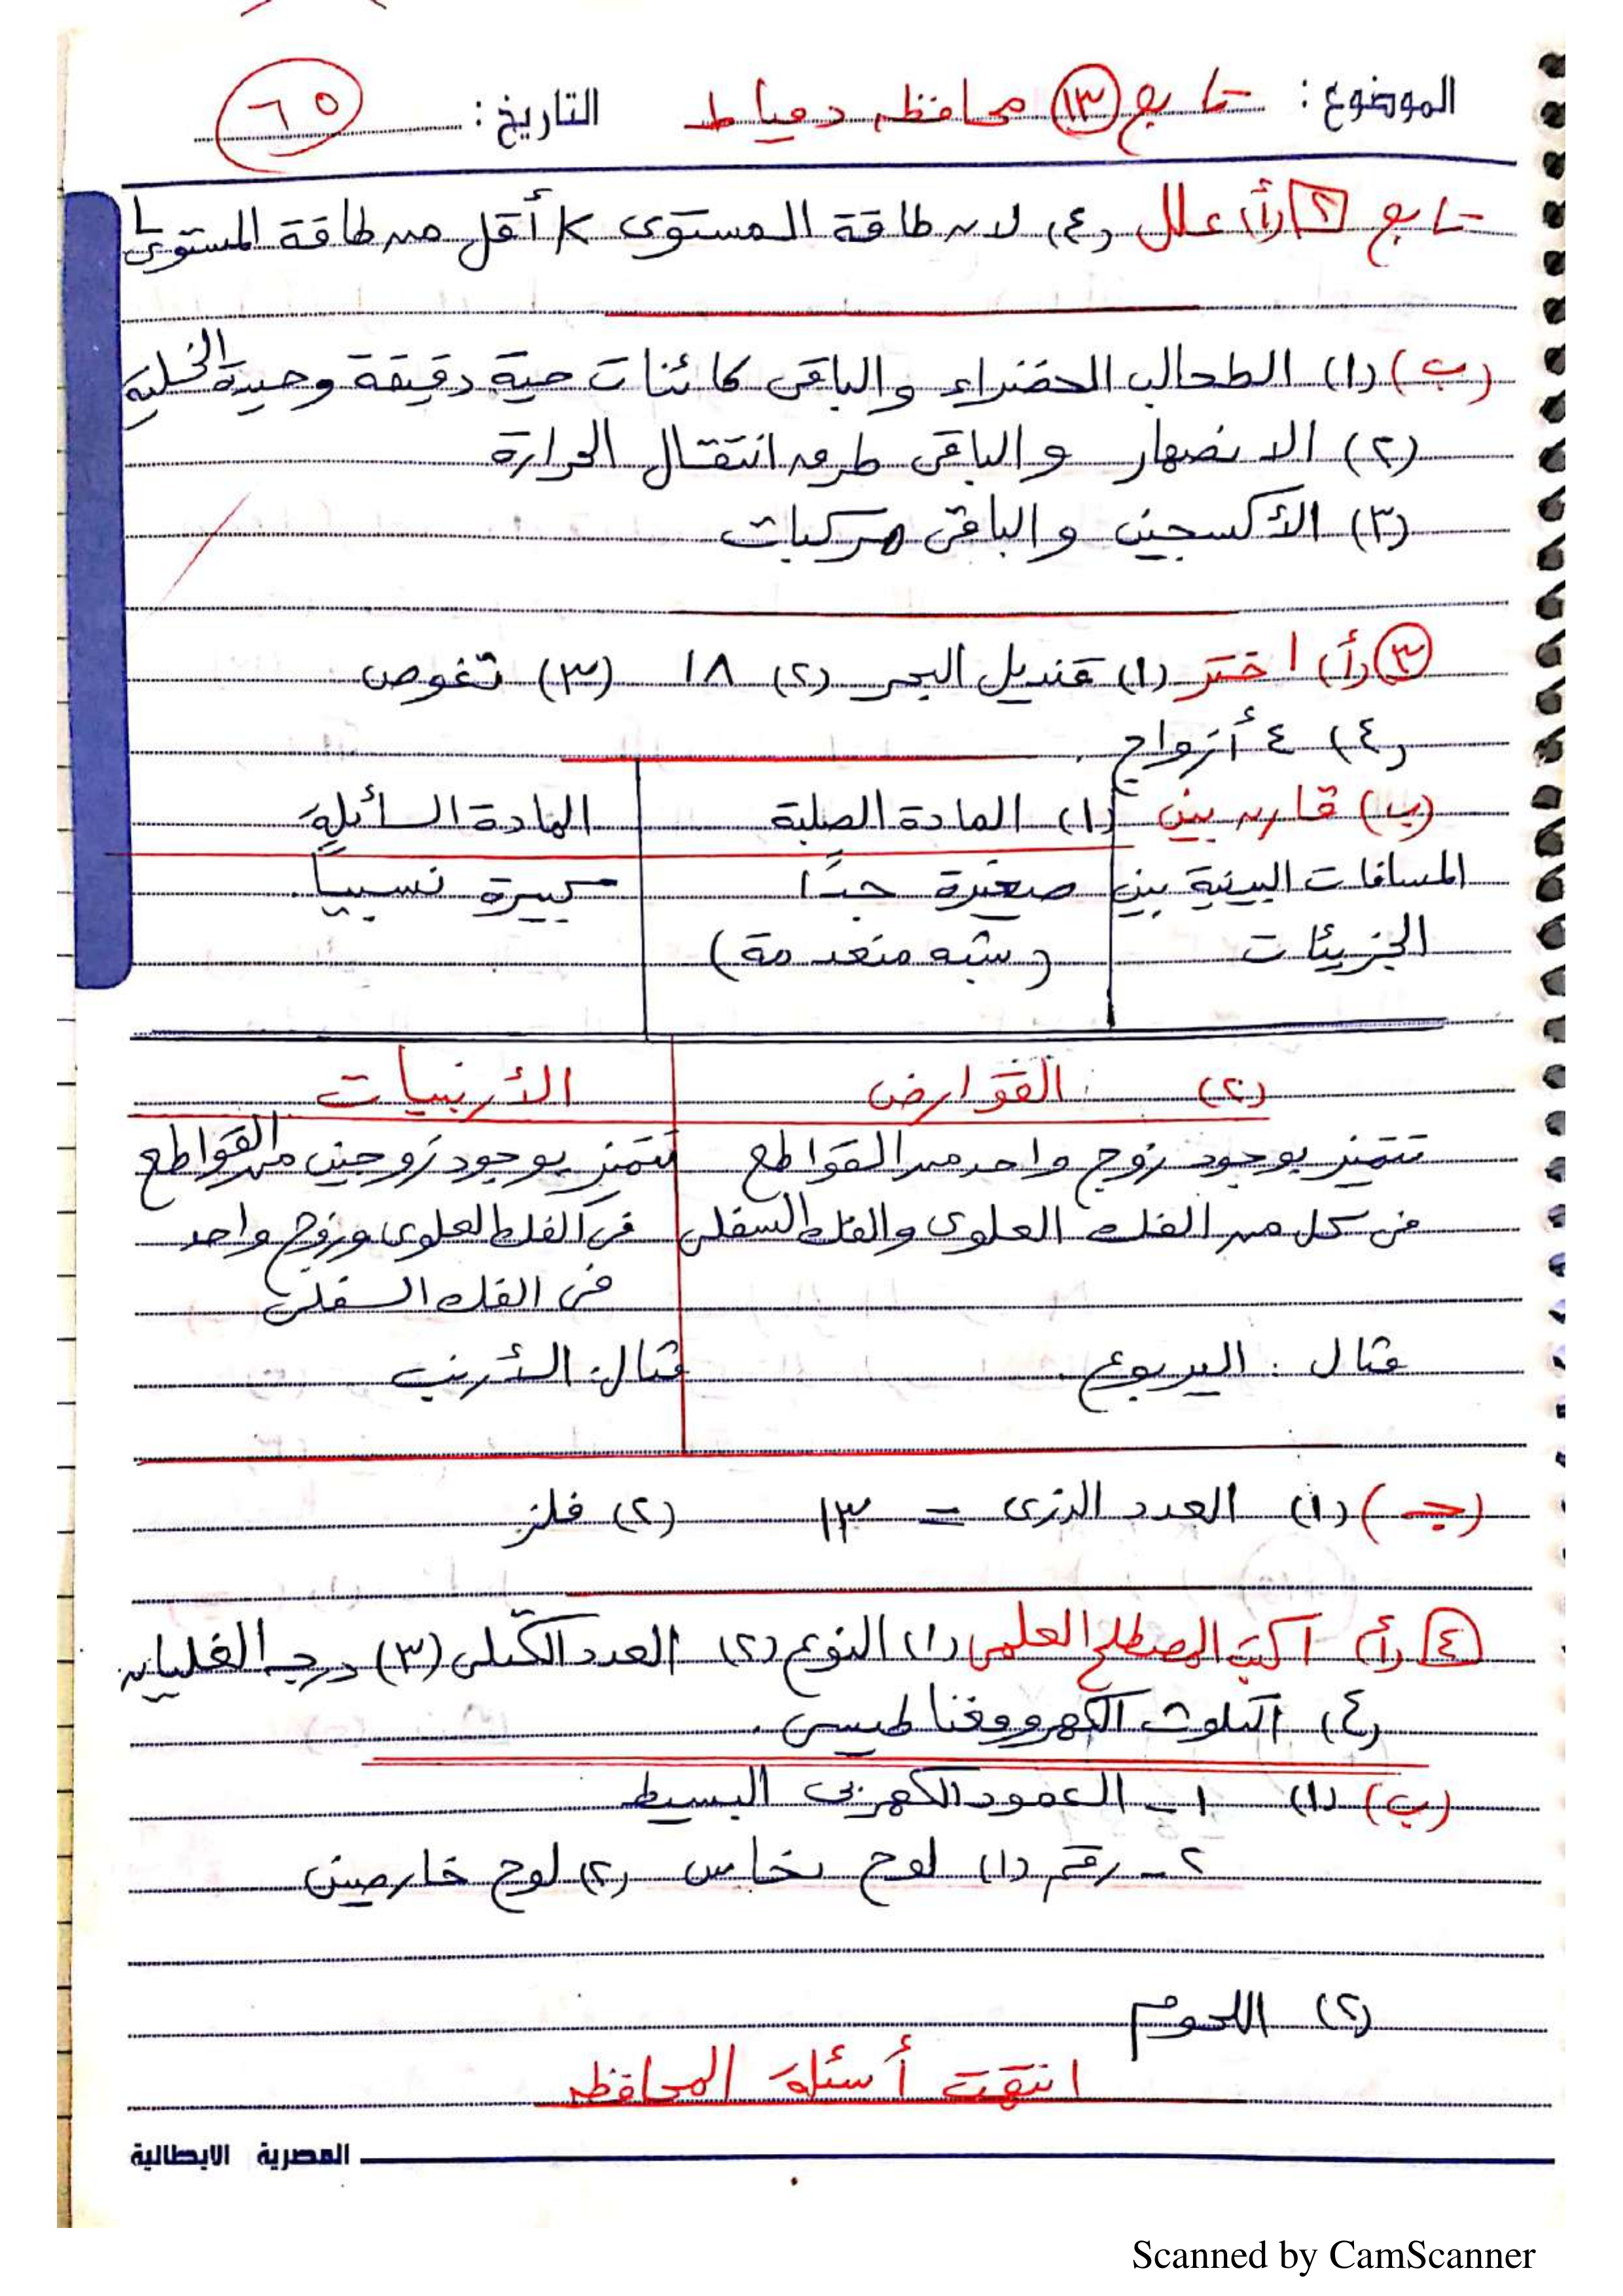 الموضوع: تابع (١٣) محافظه دمياط التاريخ: ٦٥
تابع [٢] (أ) علل (٤) لان طاقة المستوى K أقل من طاقة المستوى L
(ب) (١) الطحالب الخضراء والباقى كائنات حية دقيقة وحيدة الخليه
(٢) الانصهار والباقى طرق انتقال الحرارة
(٣) الأكسجين والباقى مركبات
(٣) (أ) اختر (١) قنديل البحر (٢) ١٨ (٣) تغوص
(٤) ٤ أزواج.
(ب) قارن بين (١) المادة الصلبة المادة السائله
المسافات البينية بين صغيرة جدًا كبيرة نسبياً.
الجزيئات (شبه منعدمة)
(٢) القوارض الأرنبيات
تتميز بوجود زوج واحد من القواطع تتميز بوجود زوجين من القواطع
فى كل من الفك العلوى والفك السفلى فى الفك العلوى وزوج واحد
فى الفك السفلى
مثال: اليربوع. مثال: الأرنب
(جـ) (١) العدد الذرى = ١٣ (٢) فلز
[٤] (أ) اكتب المصطلح العلمى (١) النوع (٢) العدد الكتلى (٣) درجه الغليان
(٤) التلوث الكهرومغناطيسى.
(ب) (١) ١ـ العمود الكهربى البسيط
٢ـ رقم (١) لوح نحاس (٢) لوح خارصين
(٢) اللحوم
انتهت أسئلة المحافظه
المصرية الايطالية
Scanned by CamScanner